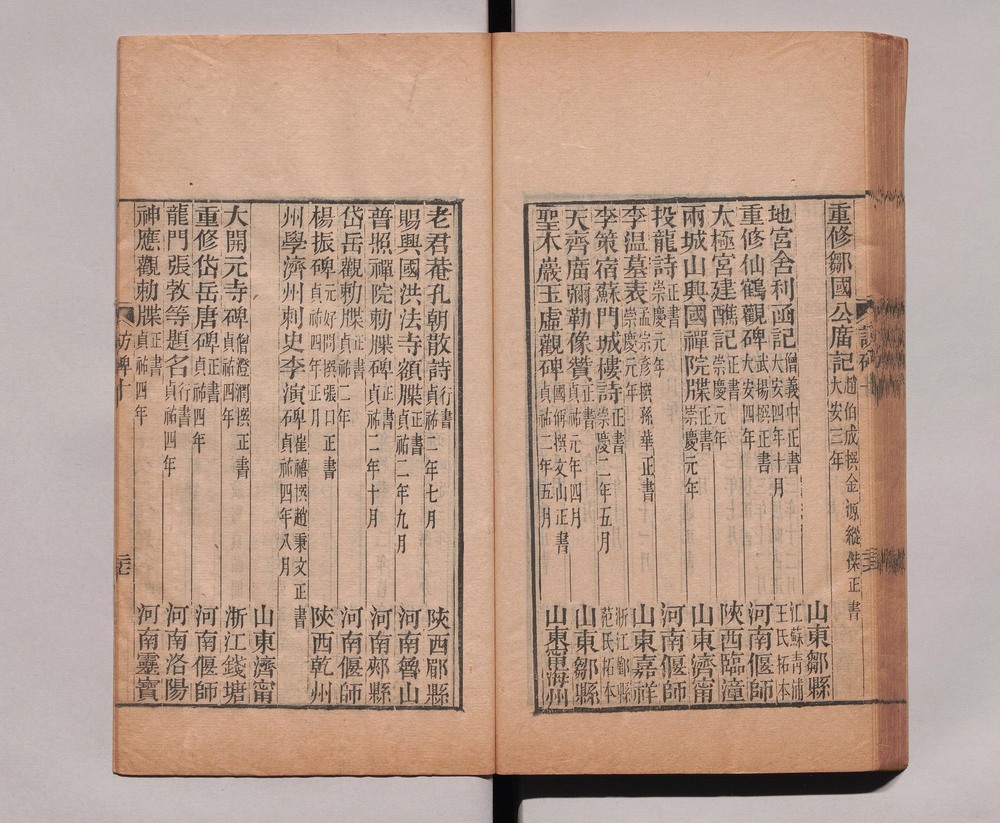 重修鄒國公廣記 趙伯成撰金源縱傑正書 大安三年 山東鄒縣
地宮舍利函記 僧義中正書 大安四年十月 江蘇靑浦王氏拓本
重修仙鶴觀碑 武揚撰正書 大安四年 河南偃師
太極宮建醮記 正書 崇慶元年 陝西臨潼
兩城山興國禪院牒 正書 崇慶元年 山東濟甯
投龍詩 正書 崇慶元年 河南偃師
李温墓表 孟宗彥撰孫華正書 崇慶元年 山東嘉祥
李策宿蘇門城樓詩 正書 崇慶二年五月 浙江鄞縣范氏拓本
天齊廣彌勒像贊 正書 貞祐元年四月 山東鄒縣
聖水巖玉虛觀碑 國偁撰文山正書 貞祐二年五月 山東甯海州
老君菴孔朝散詩 行書 貞祐二年七月 陝西郿縣
賜興國洪法寺額牒 正書 貞祐二年九月 河南魯山
普照禪院勅牒碑 正書 貞祐二年十月 河南郟縣
岱岳觀勅牒 正書 貞祐二年 河南偃師
楊振碑 元好問撰張口正書 貞祐四年正月 陝西乾州
州學濟州刺史李演碑 崔禧撰趙秉文正書 貞祐四年八月 山東濟甯
大開元寺碑 僧澄潤撰正書 貞祐四年 浙江錢塘
重修岱岳唐碑 正書 貞祐四年 河南偃師
龍門張敦等題名 行書 貞祐四年 河南洛陽
神應觀勅牒 正書 貞祐四年 河南靈寶
訪碑十